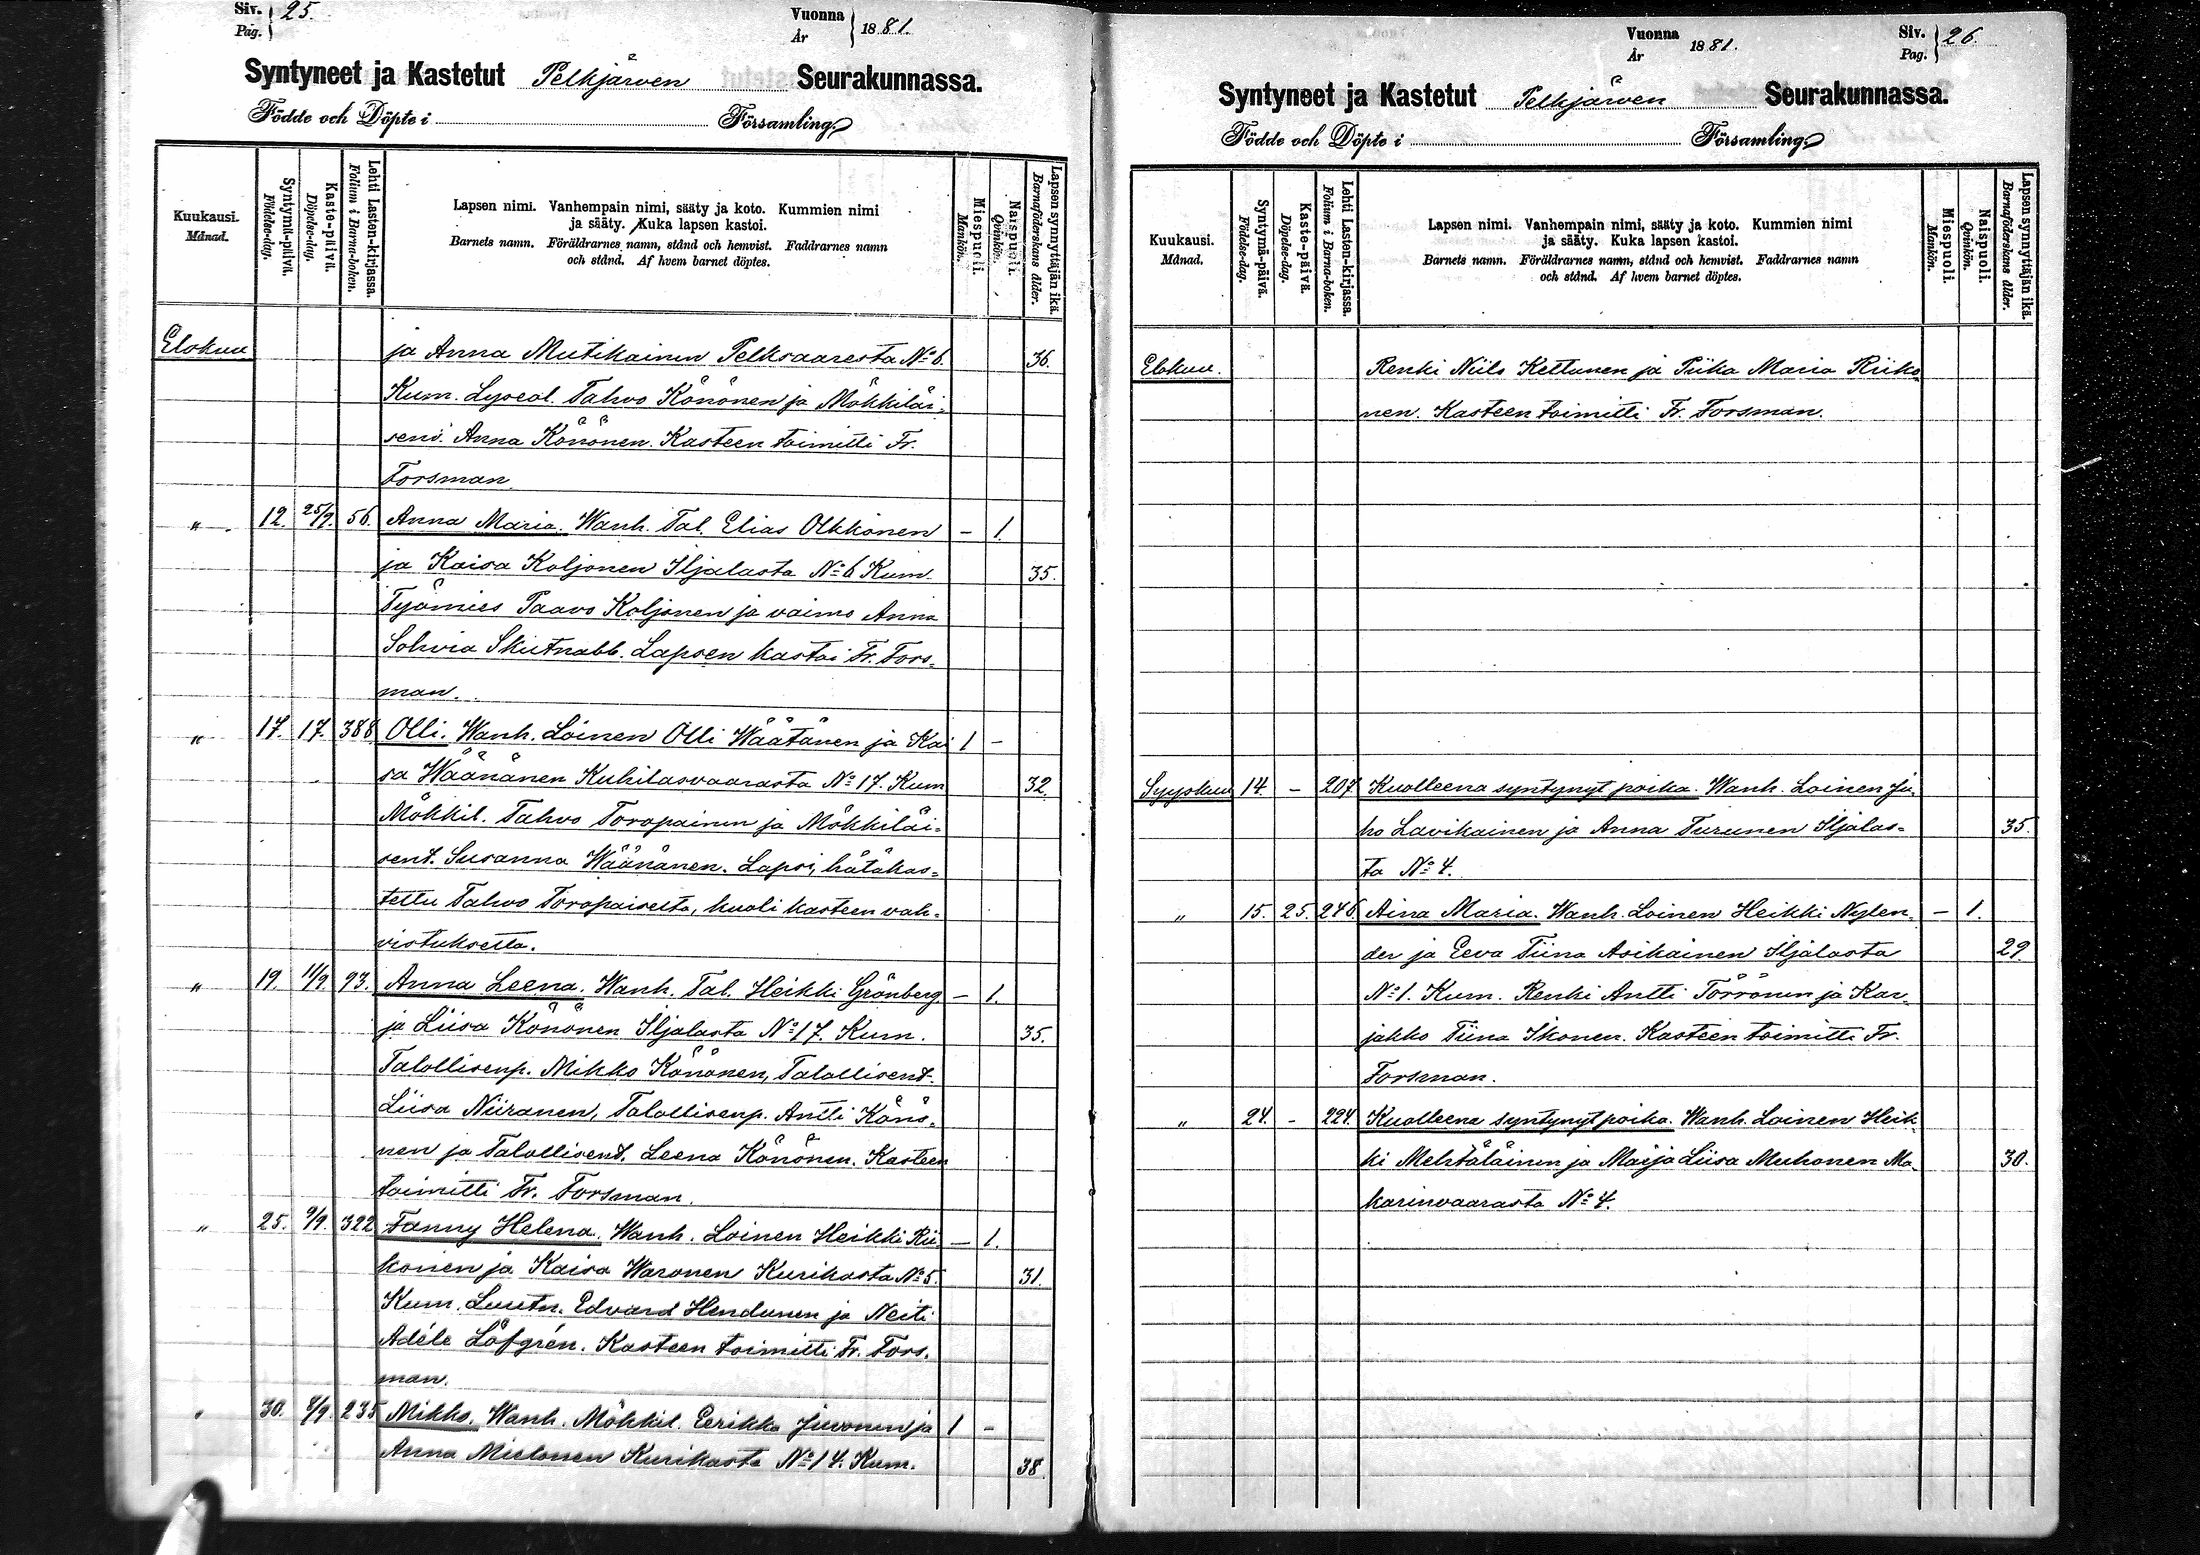 Siv. 25.
Pag.
Vuonna
År 1881.
Syntyneet ja Kastetut Pelkjärven Seurakunnassa.
Födde och Döpte i Församling.
Kuukausi.
Månad.
Syntymä-päivä.
Födelse-dag.
Kaste-päivä.
Döpelse-dag.
Lehti Lasten-kirjassa.
Folium i Barna-boken.
Lapsen nimi. Vanhempain nimi, sääty ja koto. Kummien nimi
ja sääty. Kuka lapsen kastoi.
Barnets namn. Föräldrarnes namn, stånd och hemvist. Faddrarnes namn
och stånd. Af hvem barnet döptes.
Miespuoli.
Mankön.
Naispuoli.
Qvinkön.
Lapsen synnyttäjän ikä.
Barnaföderskans ålder.
Elokuu ja Anna Mutikainen Pelksaaresta No 6. 36.
Kum. Lyseol. Tahvo Könönen ja Mökkiläi-
sent. Anna Könönen. Kasteen toimitti Fr.
Forsman.
" 12. 25/9. 56. Anna Maria. Wanh. Tal. Elias Olkkonen - 1.
ja Kaisa Koljonen Iljalasta No 6 Kum. 35.
Työmies Paavo Koljonen ja vaimo Anna
Sohvia Skutnabb. Lapsen kastoi Fr. Fors-
man.
" 17. 17. 388 Olli. Wanh. Loinen Olli Wäätänen ja Kai 1 -
sa Wäänänen Kuhilasvaarasta No 17. Kum 32.
Mökkil. Tahvo Toropainen ja Mökkiläi-
sent. Susanna Wäänänen. Lapsi, hätäkas-
tettu Tahvo Toropaiselta, kuoli kasteen vah-
vistuksetta.
" 19. 11/9. 93. Anna Leena. Wanh. Tal. Heikki Grönberg - 1.
ja Liisa Könönen Iljalasta No 17. Kum. 35.
Talollisenp. Mikko Könönen, Talollisent.
Liisa Niiranen, Talollisenp. Antti Könö-
nen ja Talollisent. Leena Könönen. Kasteen
toimitti Fr. Forsman.
" 25. 9/9. 322 Fanny Helena. Wanh. Loinen Heikki Rii- - 1.
konen ja Kaisa Waronen Kurikasta No 5. 31.
Kum. Luutn. Edvard Hendunen ja Neiti
Adéle Löfgrén. Kasteen toimitti Fr. Fors-
man.
" 30. 8/9. 235 Mikko. Wanh. Mökkil. Eerikka Juvonen ja 1 -
Anna Mielonen Kurikasta No 14. Kum. 38.
Vuonna
År 1881.
Siv. 26.
Pag.
Syntyneet ja Kastetut Pelkjärven Seurakunnassa.
Födde och Döpte i Församling.
Kuukausi.
Månad.
Syntymä-päivä.
Födelse-dag.
Kaste-päivä.
Döpelse-dag.
Lehti Lasten-kirjassa.
Folium i Barna-boken.
Lapsen nimi. Vanhempain nimi, sääty ja koto. Kummien nimi
ja sääty. Kuka lapsen kastoi.
Barnets namn. Föräldrarnes namn, stånd och hemvist. Faddrarnes namn
och stånd. Af hvem barnet döptes.
Miespuoli.
Mankön.
Naispuoli.
Qvinkön.
Lapsen synnyttäjän ikä.
Barnaföderskans ålder.
Elokuu. Renki Niilo Kettunen ja Piika Maria Riiko-
nen. Kasteen toimitti Fr. Forsman.
Syyskuu 14. - 207 Kuolleena syntynyt poika. Wanh. Loinen Ju-
ho Lavikainen ja Anna Turunen Iljalas- 35.
ta No 4.
" 15. 25. 246. Aina Maria. Wanh. Loinen Heikki Nylen- - 1.
der ja Eeva Tiina Asikainen Iljalasta 29.
No 1. Kum. Renki Antti Törrönen ja Kar-
jakko Tiina Ikonen. Kasteen toimitti Fr.
Forsman.
" 24. - 224. Kuolleena syntynyt poika. Wanh. Loinen Heik-
ki Mehtäläinen ja Maija Liisa Muhonen Ma- 30.
karinvaarasta No 4.